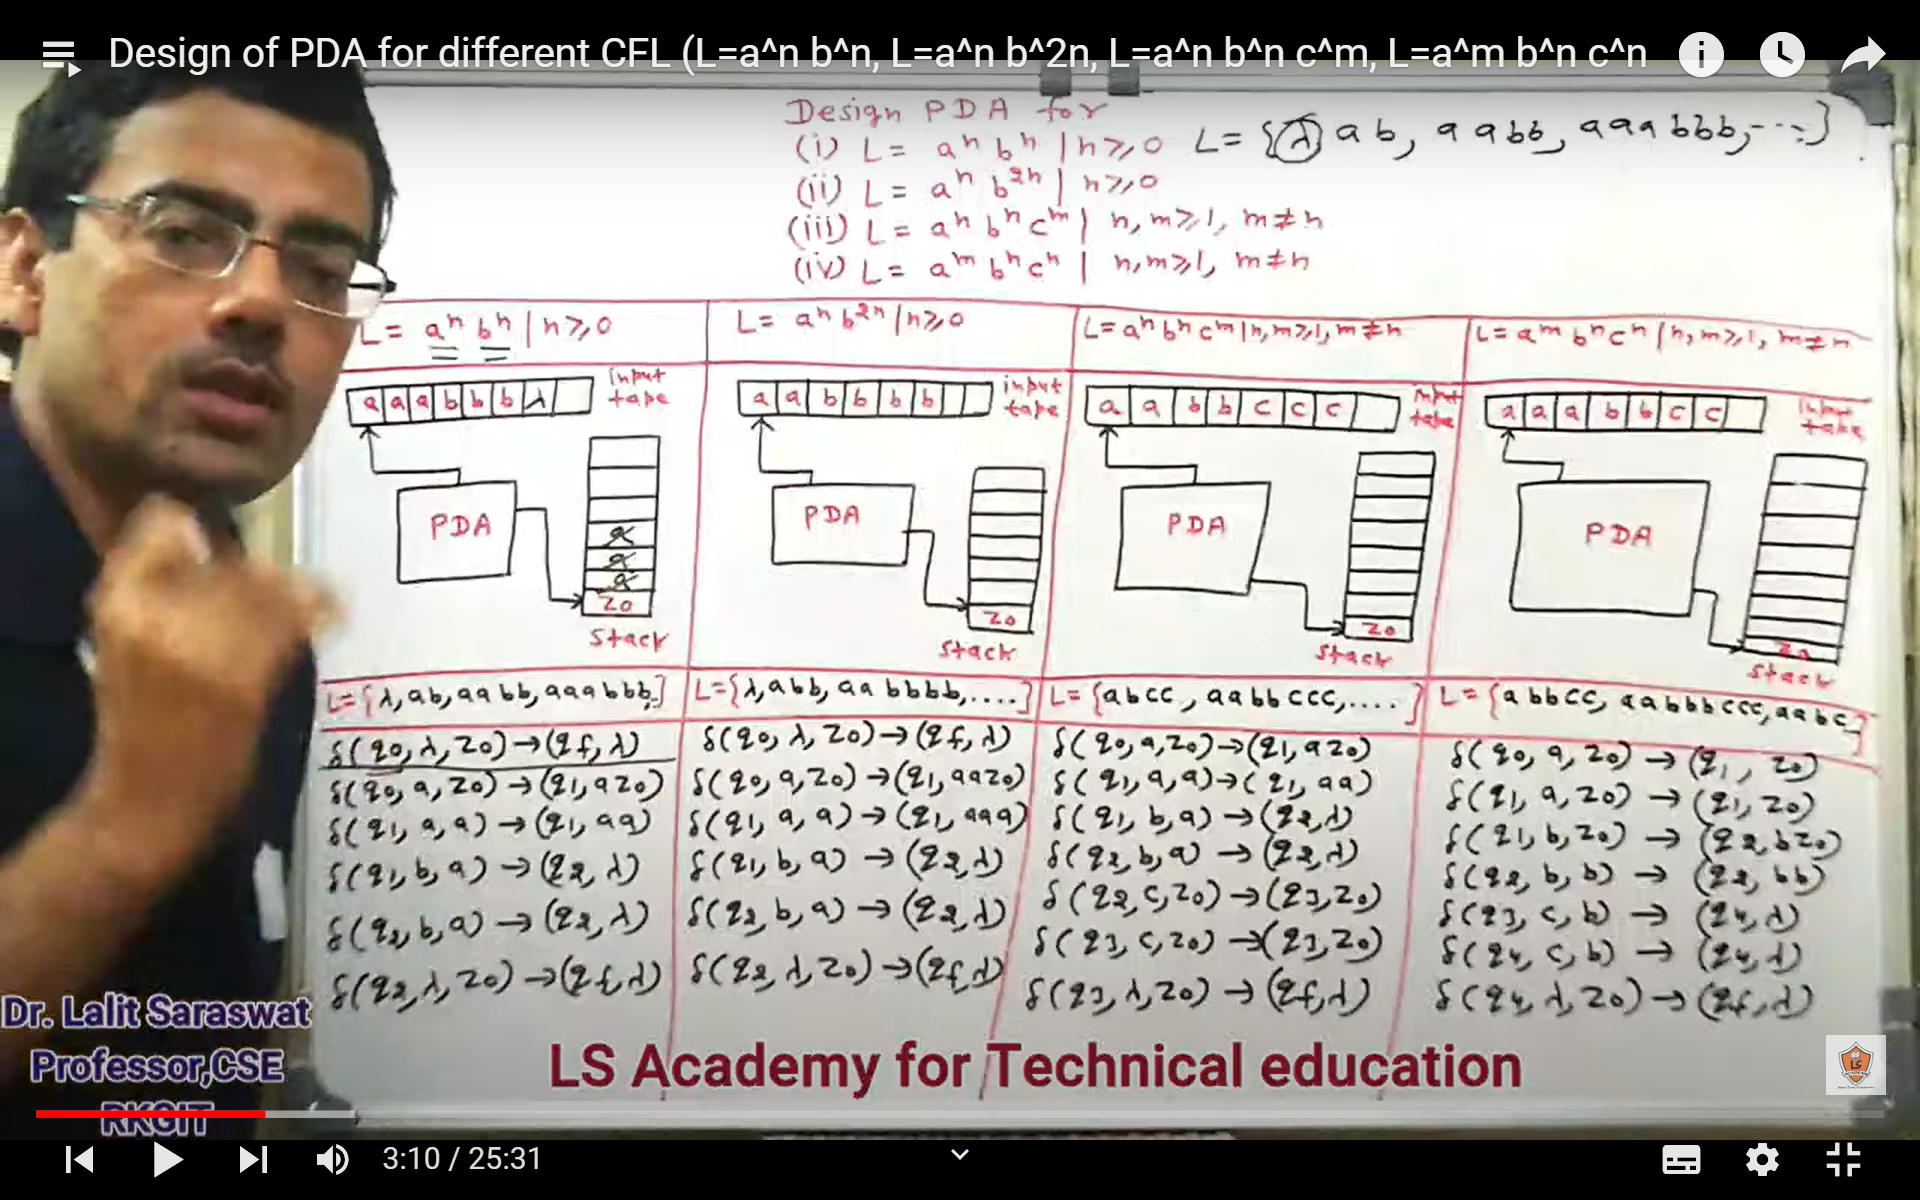 Design of PDA for different CFL (L=a^n b^n, L=a^n b^2n, L=a^n b^n c^m, L=a^m b^n c^n
Design PDA for
(i) L = aⁿ bⁿ | n≥0 L = {λ, ab, aabb, aaabbb, ---}
(ii) L = aⁿ b²ⁿ | n≥0
(iii) L = aⁿ bⁿ cᵐ | n, m≥1, m≠n
(iv) L = aᵐ bⁿ cⁿ | n, m≥1, m≠n
L = aⁿ bⁿ | n≥0
a a a b b b λ
input tape
PDA
a
a
a
z0
Stack
L={λ, ab, aabb, aaabbb, }
δ(q0, λ, z0)→(qf, λ)
δ(q0, a, z0)→(q1, az0)
δ(q1, a, a)→(q1, aa)
δ(q1, b, a)→(q2, λ)
δ(q2, b, a)→(q2, λ)
δ(q2, λ, z0)→(qf, λ)
L = aⁿ b²ⁿ | n≥0
a a b b b b
input tape
PDA
z0
Stack
L={λ, abb, aabbbb, ....}
δ(q0, λ, z0)→(qf, λ)
δ(q0, a, z0)→(q1, aaz0)
δ(q1, a, a)→(q1, aaa)
δ(q1, b, a)→(q2, λ)
δ(q2, b, a)→(q2, λ)
δ(q2, λ, z0)→(qf, λ)
L=aⁿ bⁿ cᵐ | n, m≥1, m≠n
a a b b c c c
input tape
PDA
z0
Stack
L={abcc, aabbccc, ....}
δ(q0, a, z0)→(q1, az0)
δ(q1, a, a)→(q1, aa)
δ(q1, b, a)→(q2, λ)
δ(q2, b, a)→(q2, λ)
δ(q2, c, z0)→(q3, z0)
δ(q3, c, z0)→(q3, z0)
δ(q3, λ, z0)→(qf, λ)
L=aᵐ bⁿ cⁿ | n, m≥1, m≠n
a a a b b c c
input tape
PDA
z0
Stack
L={abbcc, aabbbccc, aabc}
δ(q0, a, z0)→(q1, z0)
δ(q1, a, z0)→(q1, z0)
δ(q1, b, z0)→(q2, bz0)
δ(q2, b, b)→(q2, bb)
δ(q3, c, b)→(q4, λ)
δ(q4, c, b)→(q4, λ)
δ(q4, λ, z0)→(qf, λ)
Dr. Lalit Saraswat
Professor,CSE
RKGIT
LS Academy for Technical education
LS
3:10 / 25:31